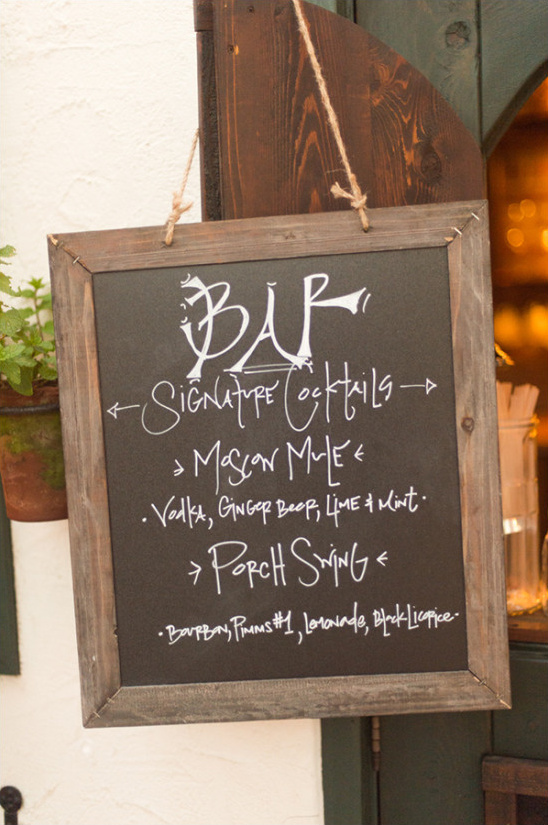 BAR
Signature Cocktails
Moscow Mule
Vodka, Ginger Beer, Lime & Mint
Porch Swing
Bourbon, Pimms #1, Lemonade, Black Licorice